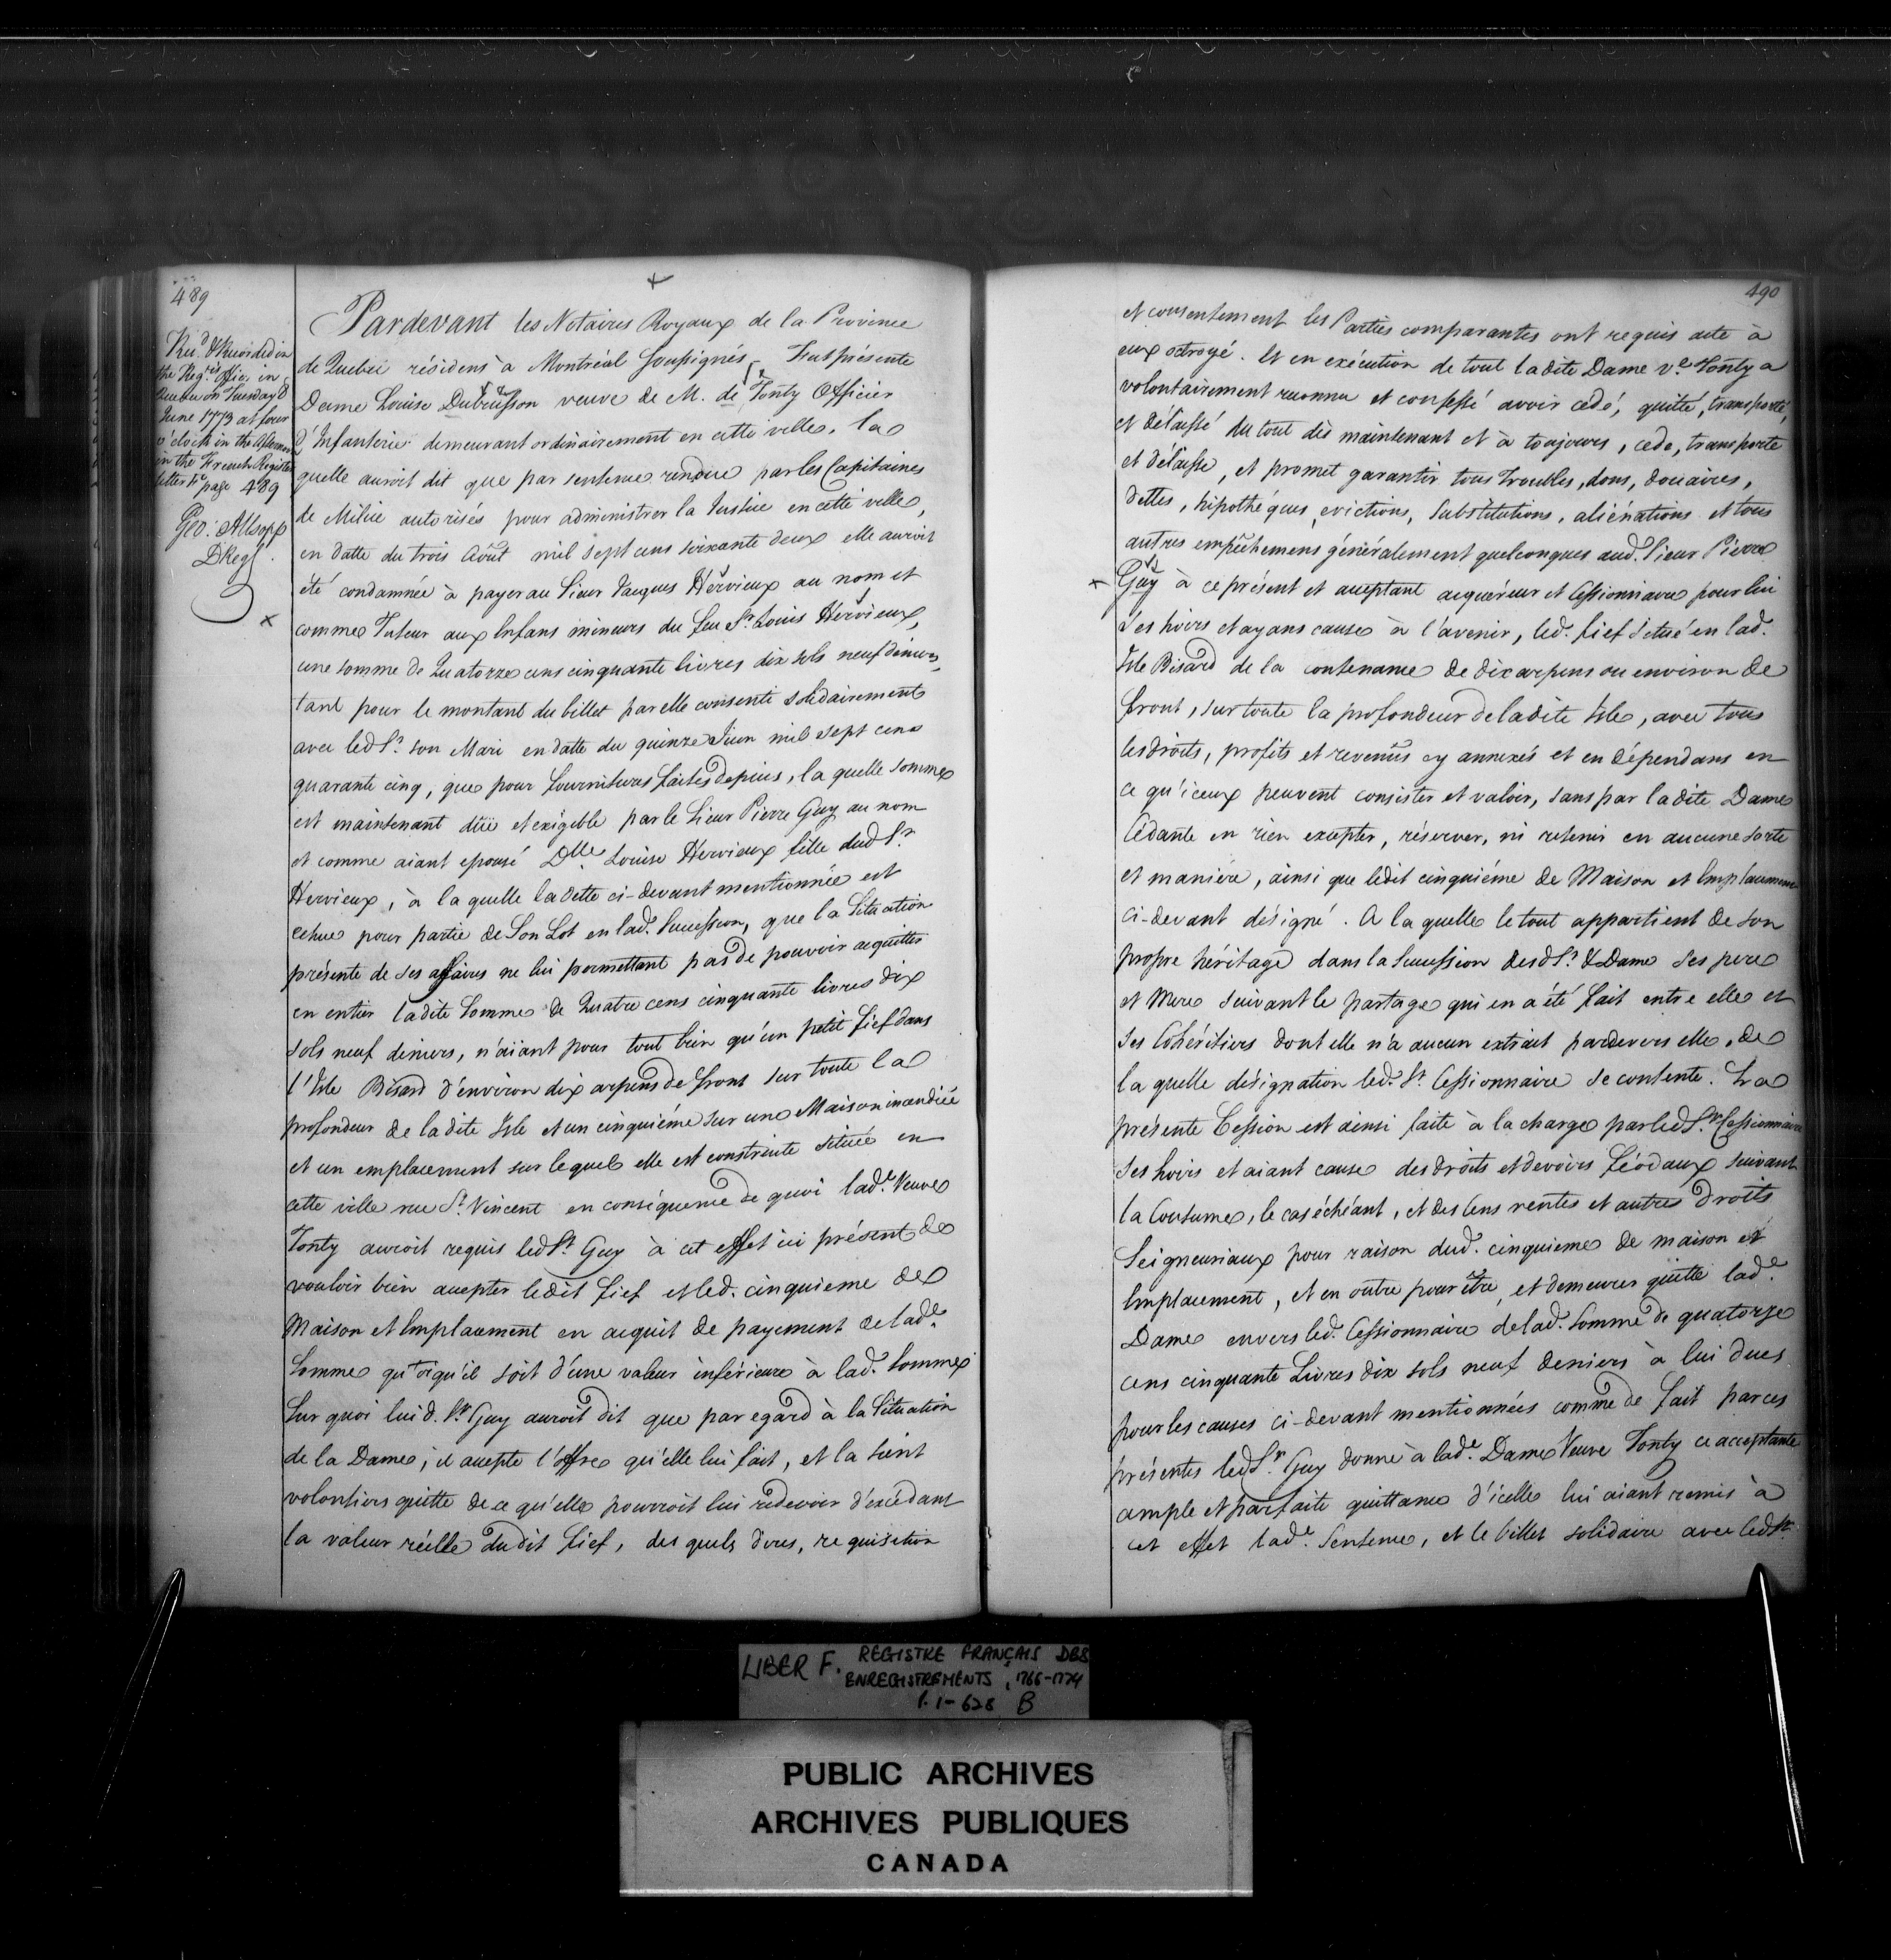 489
Rec.d & Recorded in
the Reg.rs Office in
Quebec on Tuesday 8
June 1773 at four
o'clock in the Afternoon
in the French Register
letter F. page 489
Geo: Allsopp
DReg.
×
Pardevant les Notaires Royaux de la Province
de Quebec résidens à Montréal Soussignés, Fut présente
Dame Louise Dubuisson veuve de M. de Tonty Officier
d'Infanterie demeurant ordinairement en cette ville, la
quelle auroit dit que par sentence rendue par les Capitaines
de Milice autorisés pour administrer la Justice en cette ville,
en datte du trois Août mil sept cens soixante deux elle auroit
été condamnée à payer au Sieur Jacques Hervieux au nom et
× comme Tuteur aux Enfans mineurs du feu Sr. Louis Hervieux,
une somme de Quatorze cens cinquante livres dix sols neuf deniers,
tant pour le montant du billet par elle consenti solidairement
avec led Sr. son Mari en datte du quinze Juin mil sept cens
quarante cinq, que pour fournitures faites depuis, la quelle somme
est maintenant dûë et exigible par le Sieur Pierre Guy au nom
et comme aiant epousé Dlle Louise Hervieux fille dud Sr
Hervieux, à la quelle la dette ci-devant mentionnée est
echue pour partie de Son Lot en lad. Succession, que la Situation
présente de ses affaires ne lui permettant pas de pouvoir acquitter
en entier ladite Somme de Quatre cens cinquante livres dix
sols neuf deniers, n'aiant pour tout bien qu'un petit fief dans
l'Isle Bisard d'environ dix arpens de front sur toute la
profondeur de ladite Isle et un cinquiéme sur une Maison incendiée
et un emplacement sur lequel elle est construite située en
cette ville rue St. Vincent en conséquence de quoi lad.e Veuve
Tonty auroit requis led Sr. Guy à cet effet ici présent de
vouloir bien accepter ledit fief et led. cinquieme de
Maison et Emplacement en acquit de payement de lad.e
Somme quoiqu'il soit d'une valeur inférieure à lad. Somme
Sur quoi luid. Sr Guy auroit dit que par egard à la Situation
de la Dame, il accepte l'offre qu'elle lui fait, et la tient
volontiers quitte de ce qu'elle pourroit lui redevoir d'excédant
la valeur réelle dudit fief, des quels dires, requisition
490
et consentement les Parties comparantes ont requis acte à
eux octroyé. Et en exécution de tout ladite Dame v.e Tonty a
volontairement reconnu et confessé avoir cedé, quitté, transporté,
et délaissé du tout dès maintenant et à toujours, cede, transporte
et délaisse, et promet garantir tous troubles, dons, douaires,
dettes, hipothéques, evictions, Substitutions, aliénations et tous
autres empêchemens généralement quelconques aud. Sieur Pierre
× Guy à ce présent et acceptant acquéreur et Cessionnaire pour lui
Ses hoirs et ayans cause à l'avenir, led. fief situé en lad.
Isle Bisard de la contenance de dix arpens ou environ de
front, sur toute la profondeur de ladite Isle, avec tous
les droits, profits et revenus y annexés et en dépendans en
ce qu'iceux peuvent consister et valoir, sans par ladite Dame
Cédante en rien excepter, réserver, ni retenir en aucune sorte
et manière, ainsi que ledit cinquiéme de Maison et Emplacement
ci-devant désigné. A la quelle le tout appartient de son
propre héritage dans la Succession desd Sr. & Dame Ses pere
et Mere suivant le partage qui en a été fait entre elle et
Ses Cohéritiers dont elle n'a aucun extrait pardevers elle, de
la quelle désignation led. Sr. Cessionnaire se contente. La
présente Cession est ainsi faite à la charge par led Sr. Cessionnaire
Ses hoirs et aiant cause des droits et devoirs féodaux suivant
la Coutume, le cas échéant, et des Cens rentes et autres Droits
Seigneuriaux pour raison dud. cinquieme de maison et
Emplacement, et en outre pour être, et demeurer quitte lad.e
Dame envers led. Cessionnaire de lad. Somme de quatorze
cens cinquante Livres dix sols neuf deniers à lui dues
pour les causes ci-devant mentionnées comme de fait par ces
présentes led Sr. Guy donne à lad.e Dame Veuve Tonty ce acceptante
ample et parfaite quittance d'icelle lui aiant remis à
cet effet lad.e Sentence, et le billet solidaire avec led Sr.
LIBER F. REGISTRE FRANÇAIS DES
ENREGISTREMENTS, 1766-1774
P. 1-628 B
PUBLIC ARCHIVES
ARCHIVES PUBLIQUES
CANADA